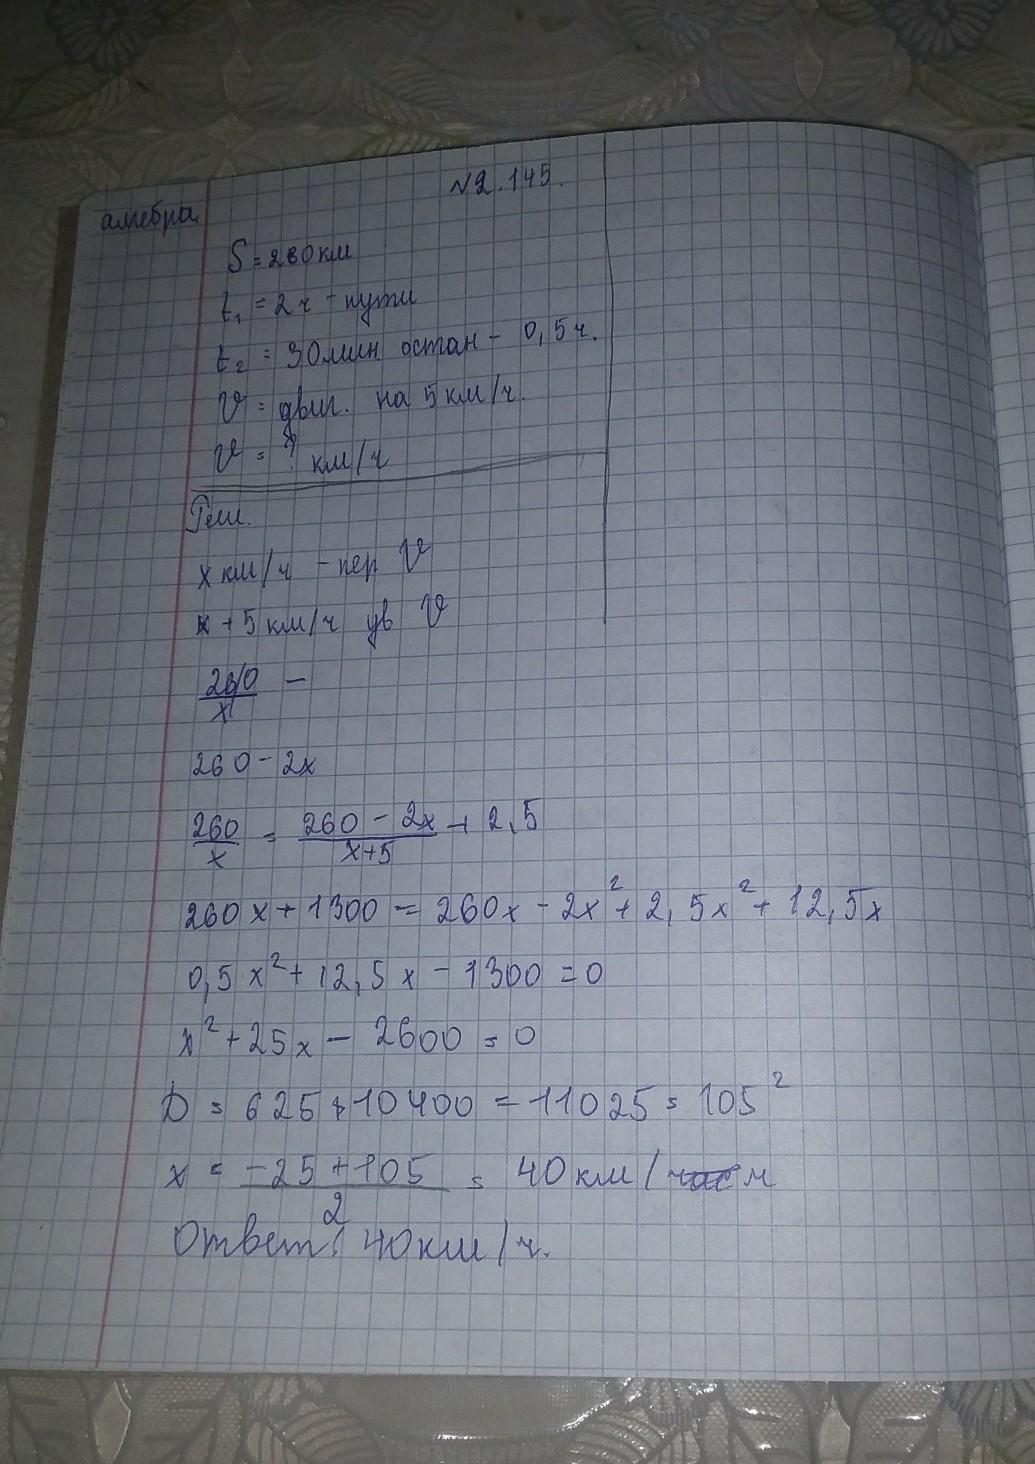 N2.145.
алгебра
S = 260 км
t₁ = 2 ч - пути
t₂ = 30 мин остан - 0,5 ч.
V = двиг. на 5 км/ч.
V = ? км/ч
Реш.
x км/ч - пер V
x + 5 км/ч ув V
260/x -
260 - 2x
260/x = (260 - 2x)/(x+5) + 2,5
260x + 1300 = 260x - 2x² + 2,5x² + 12,5x
0,5x² + 12,5x - 1300 = 0
x² + 25x - 2600 = 0
D = 625 + 10400 = 11025 = 105²
x = (-25 + 105)/2 = 40 км/ч
Ответ: 40 км/ч.